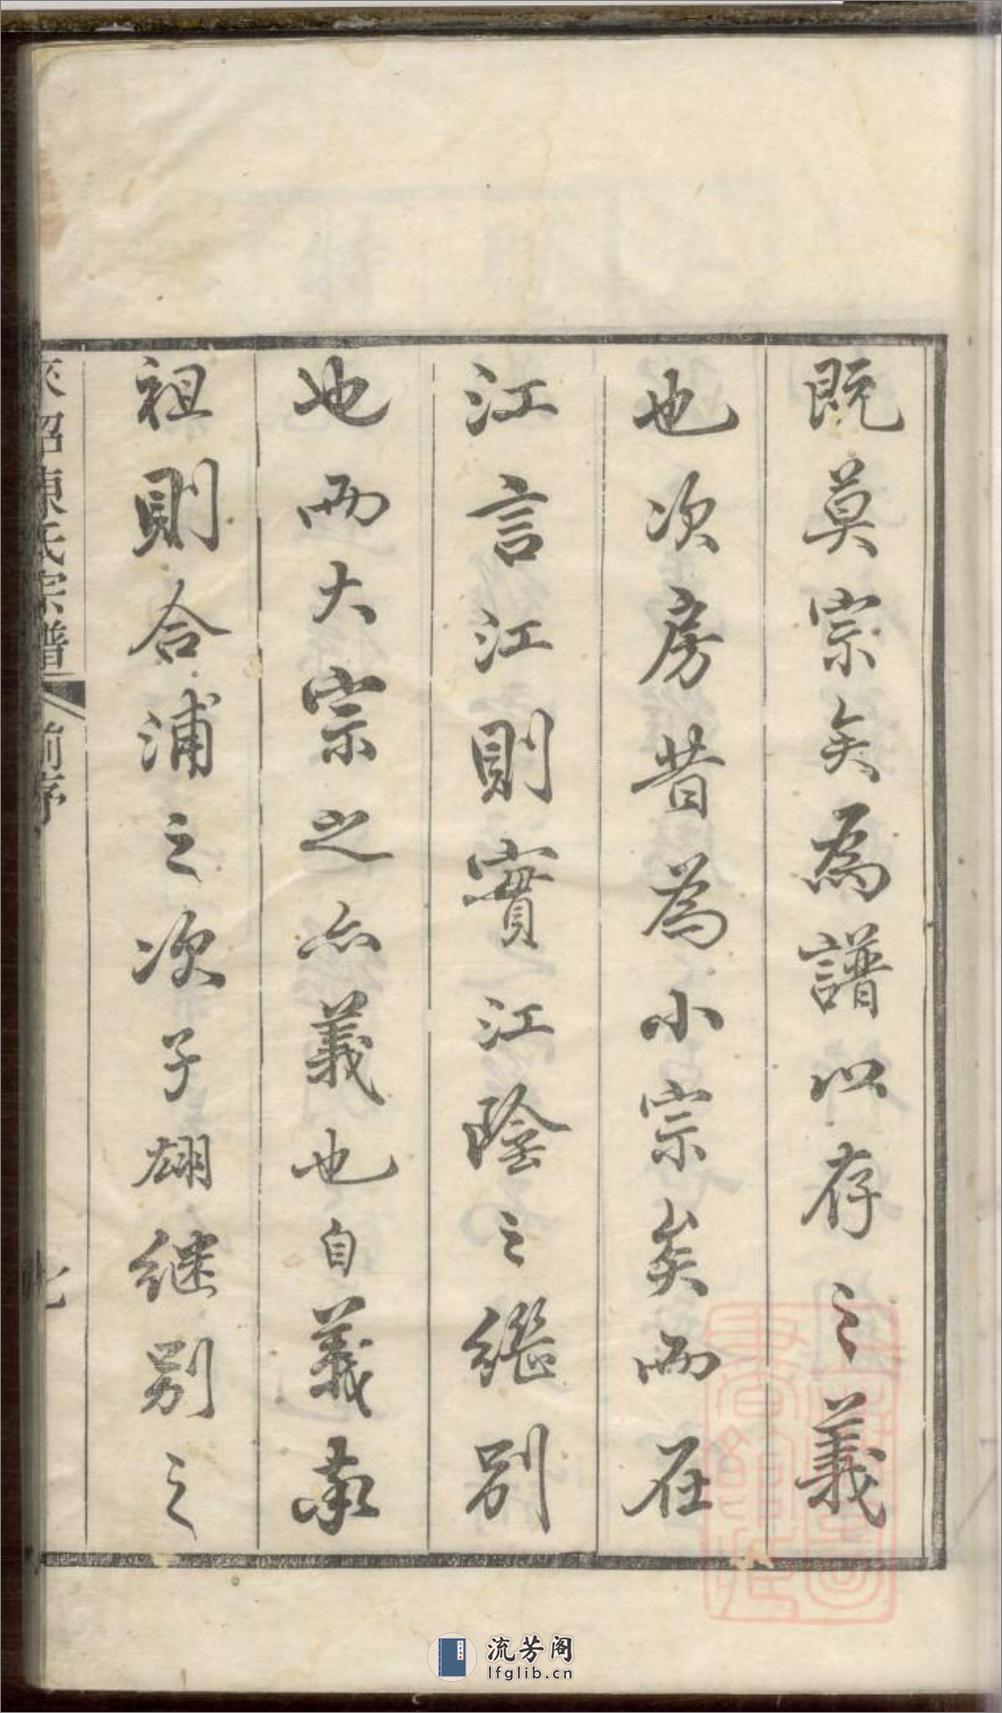 既莫宗矣為譜以存之義
也次房昔為小宗矣而在
江言江則實江陰之繼別
也而大宗之亦義也自義南
祖則合浦之次子翃继别之
陳氏宗譜
前序
流芳阁
lfglib.cn